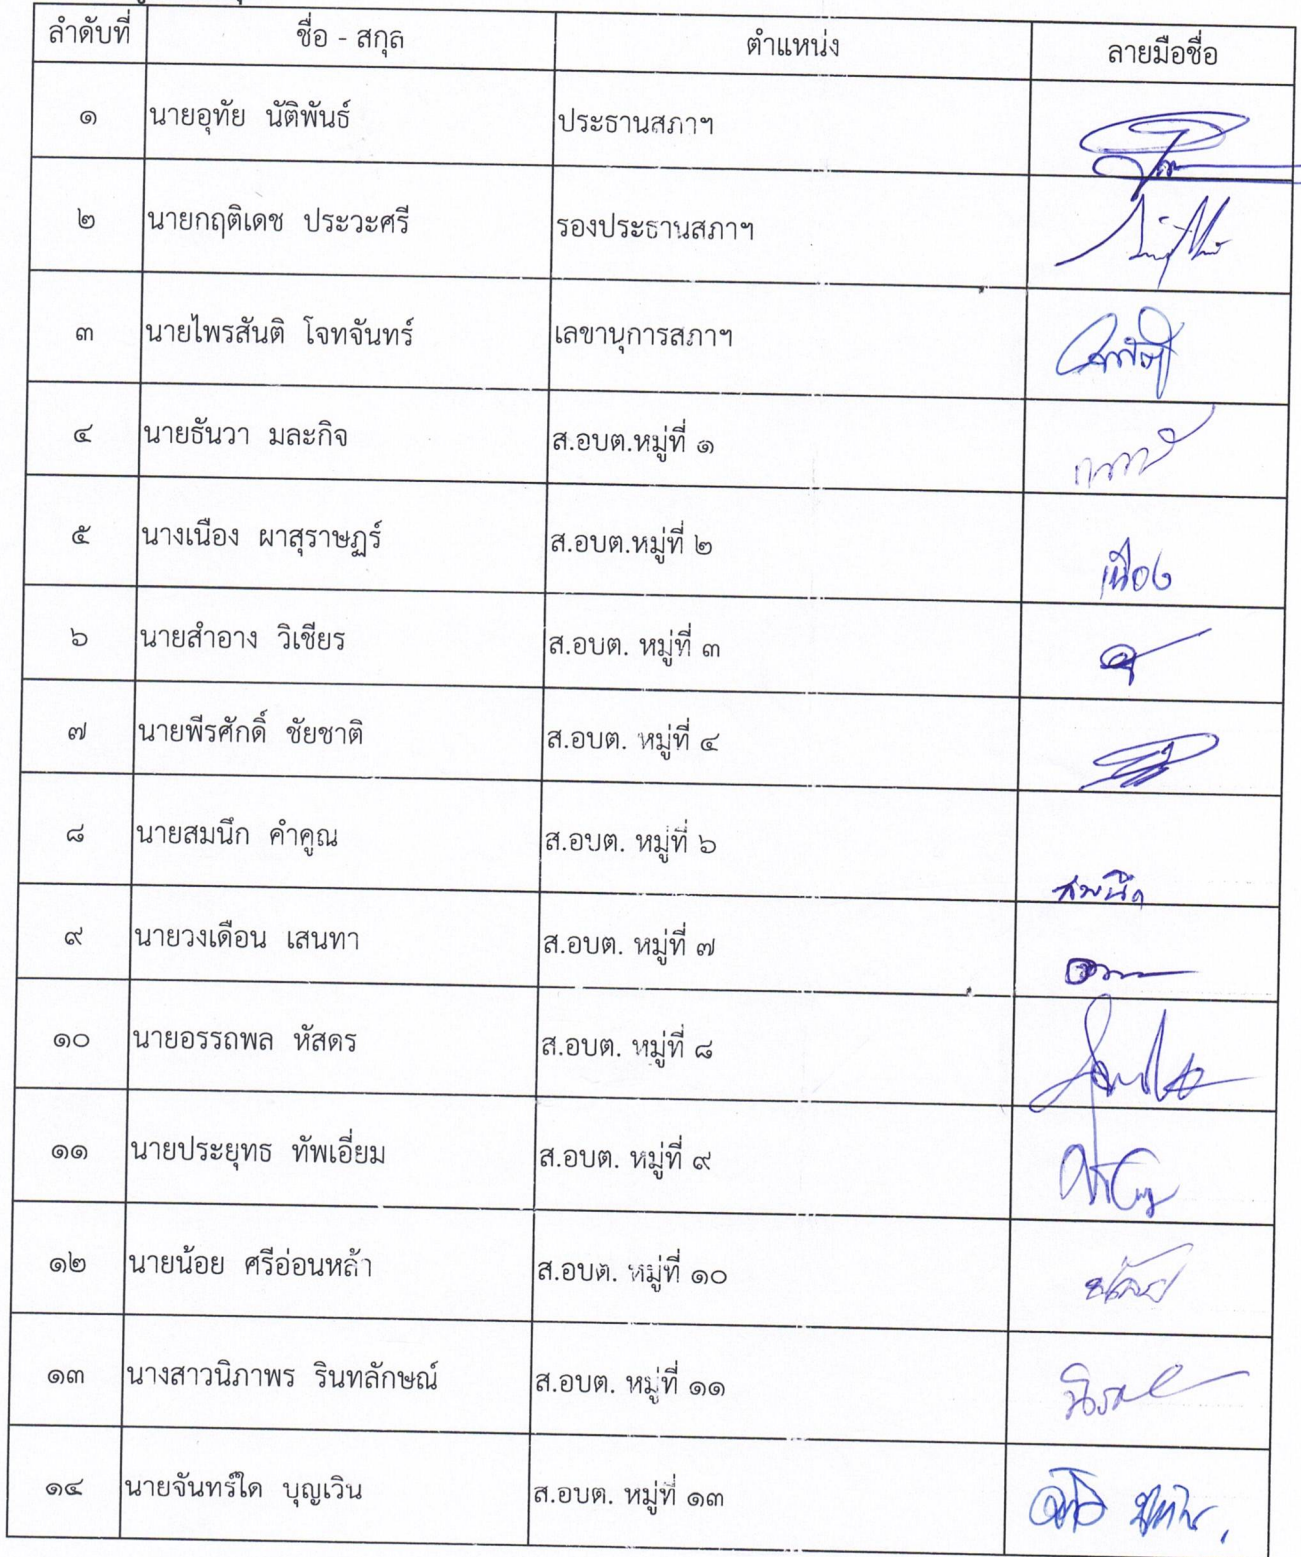 ลำดับที่ ชื่อ - สกุล ตำแหน่ง ลายมือชื่อ
๑ นายอุทัย นัติพันธ์ ประธานสภาฯ
๒ นายกฤติเดช ประวะศรี รองประธานสภาฯ
๓ นายไพรสันติ โจทจันทร์ เลขานุการสภาฯ
๔ นายธันวา มละกิจ ส.อบต.หมู่ที่ ๑
๕ นางเนือง ผาสุราษฏร์ ส.อบต.หมู่ที่ ๒ เนือง
๖ นายสำอาง วิเชียร ส.อบต. หมู่ที่ ๓
๗ นายพีรศักดิ์ ชัยชาติ ส.อบต. หมู่ที่ ๔
๘ นายสมนึก คำคูณ ส.อบต. หมู่ที่ ๖ สมนึก
๙ นายวงเดือน เสนทา ส.อบต. หมู่ที่ ๗
๑๐ นายอรรถพล หัสดร ส.อบต. หมู่ที่ ๘
๑๑ นายประยุทธ ทัพเอี่ยม ส.อบต. หมู่ที่ ๙
๑๒ นายน้อย ศรีอ่อนหล้า ส.อบต. หมู่ที่ ๑๐
๑๓ นางสาวนิภาพร รินทลักษณ์ ส.อบต. หมู่ที่ ๑๑
๑๔ นายจันทร์ใด บุญเวิน ส.อบต. หมู่ที่ ๑๓